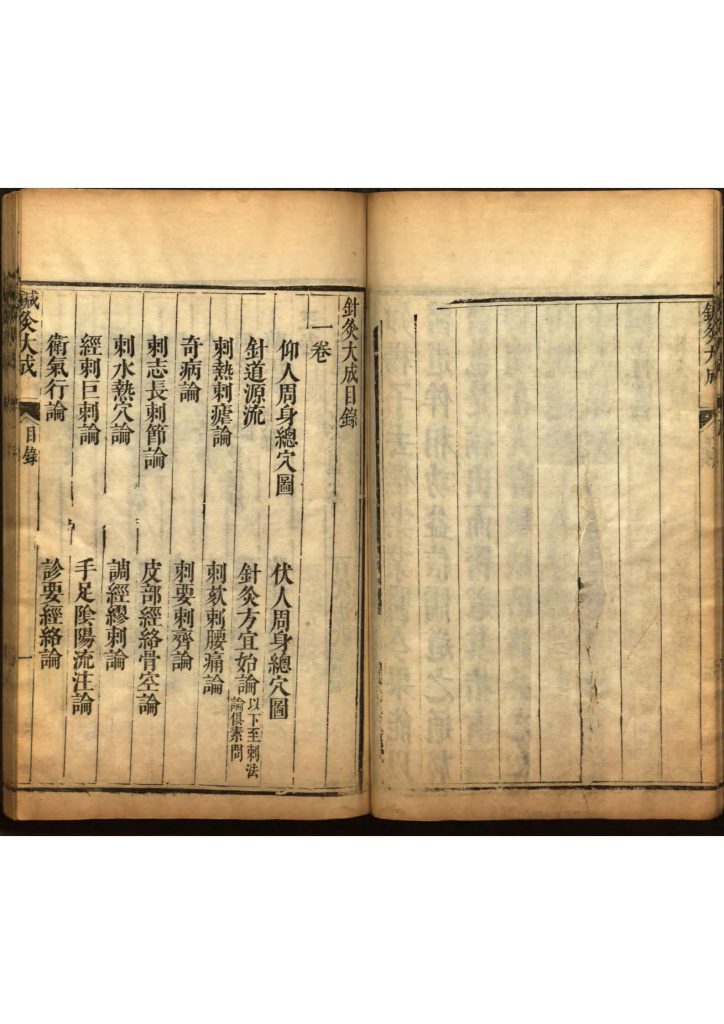 針灸大成目錄
一卷
仰人周身總穴圖 伏人周身總穴圖
針道源流 針灸方宜始論 以下至刺法論俱素問
刺熱刺瘧論 刺欬刺腰痛論
奇病論 刺要刺齊論
刺志長刺節論 皮部經絡骨空論
刺水熱穴論 調經繆刺論
經刺巨刺論 手足陰陽流注論
衛氣行論 診要經絡論
鍼灸大成 目錄 一